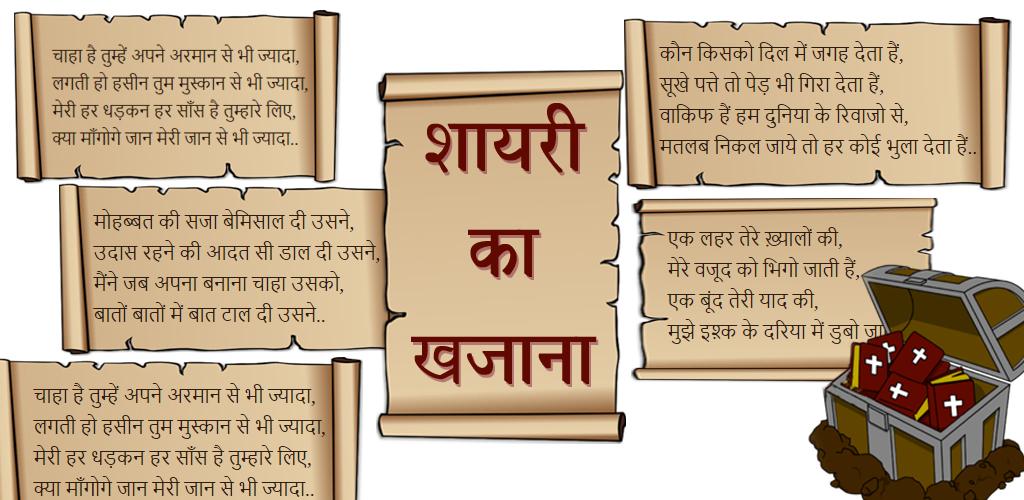 चाहा है तुम्हें अपने अरमान से भी ज्यादा,
लगती हो हसीन तुम मुस्कान से भी ज्यादा,
मेरी हर धड़कन हर साँस है तुम्हारे लिए,
क्या माँगोगे जान मेरी जान से भी ज्यादा..
मोहब्बत की सजा बेमिसाल दी उसने,
उदास रहने की आदत सी डाल दी उसने,
मैंने जब अपना बनाना चाहा उसको,
बातों बातों में बात टाल दी उसने..
चाहा है तुम्हें अपने अरमान से भी ज्यादा,
लगती हो हसीन तुम मुस्कान से भी ज्यादा,
मेरी हर धड़कन हर साँस है तुम्हारे लिए,
क्या माँगोगे जान मेरी जान से भी ज्यादा..
शायरी
का
खजाना
कौन किसको दिल में जगह देता हैं,
सूखे पत्ते तो पेड़ भी गिरा देता हैं,
वाकिफ हैं हम दुनिया के रिवाजो से,
मतलब निकल जाये तो हर कोई भुला देता हैं..
एक लहर तेरे ख़्यालों की,
मेरे वजूद को भिगो जाती हैं,
एक बूंद तेरी याद की,
मुझे इश़्क के दरिया में डुबो